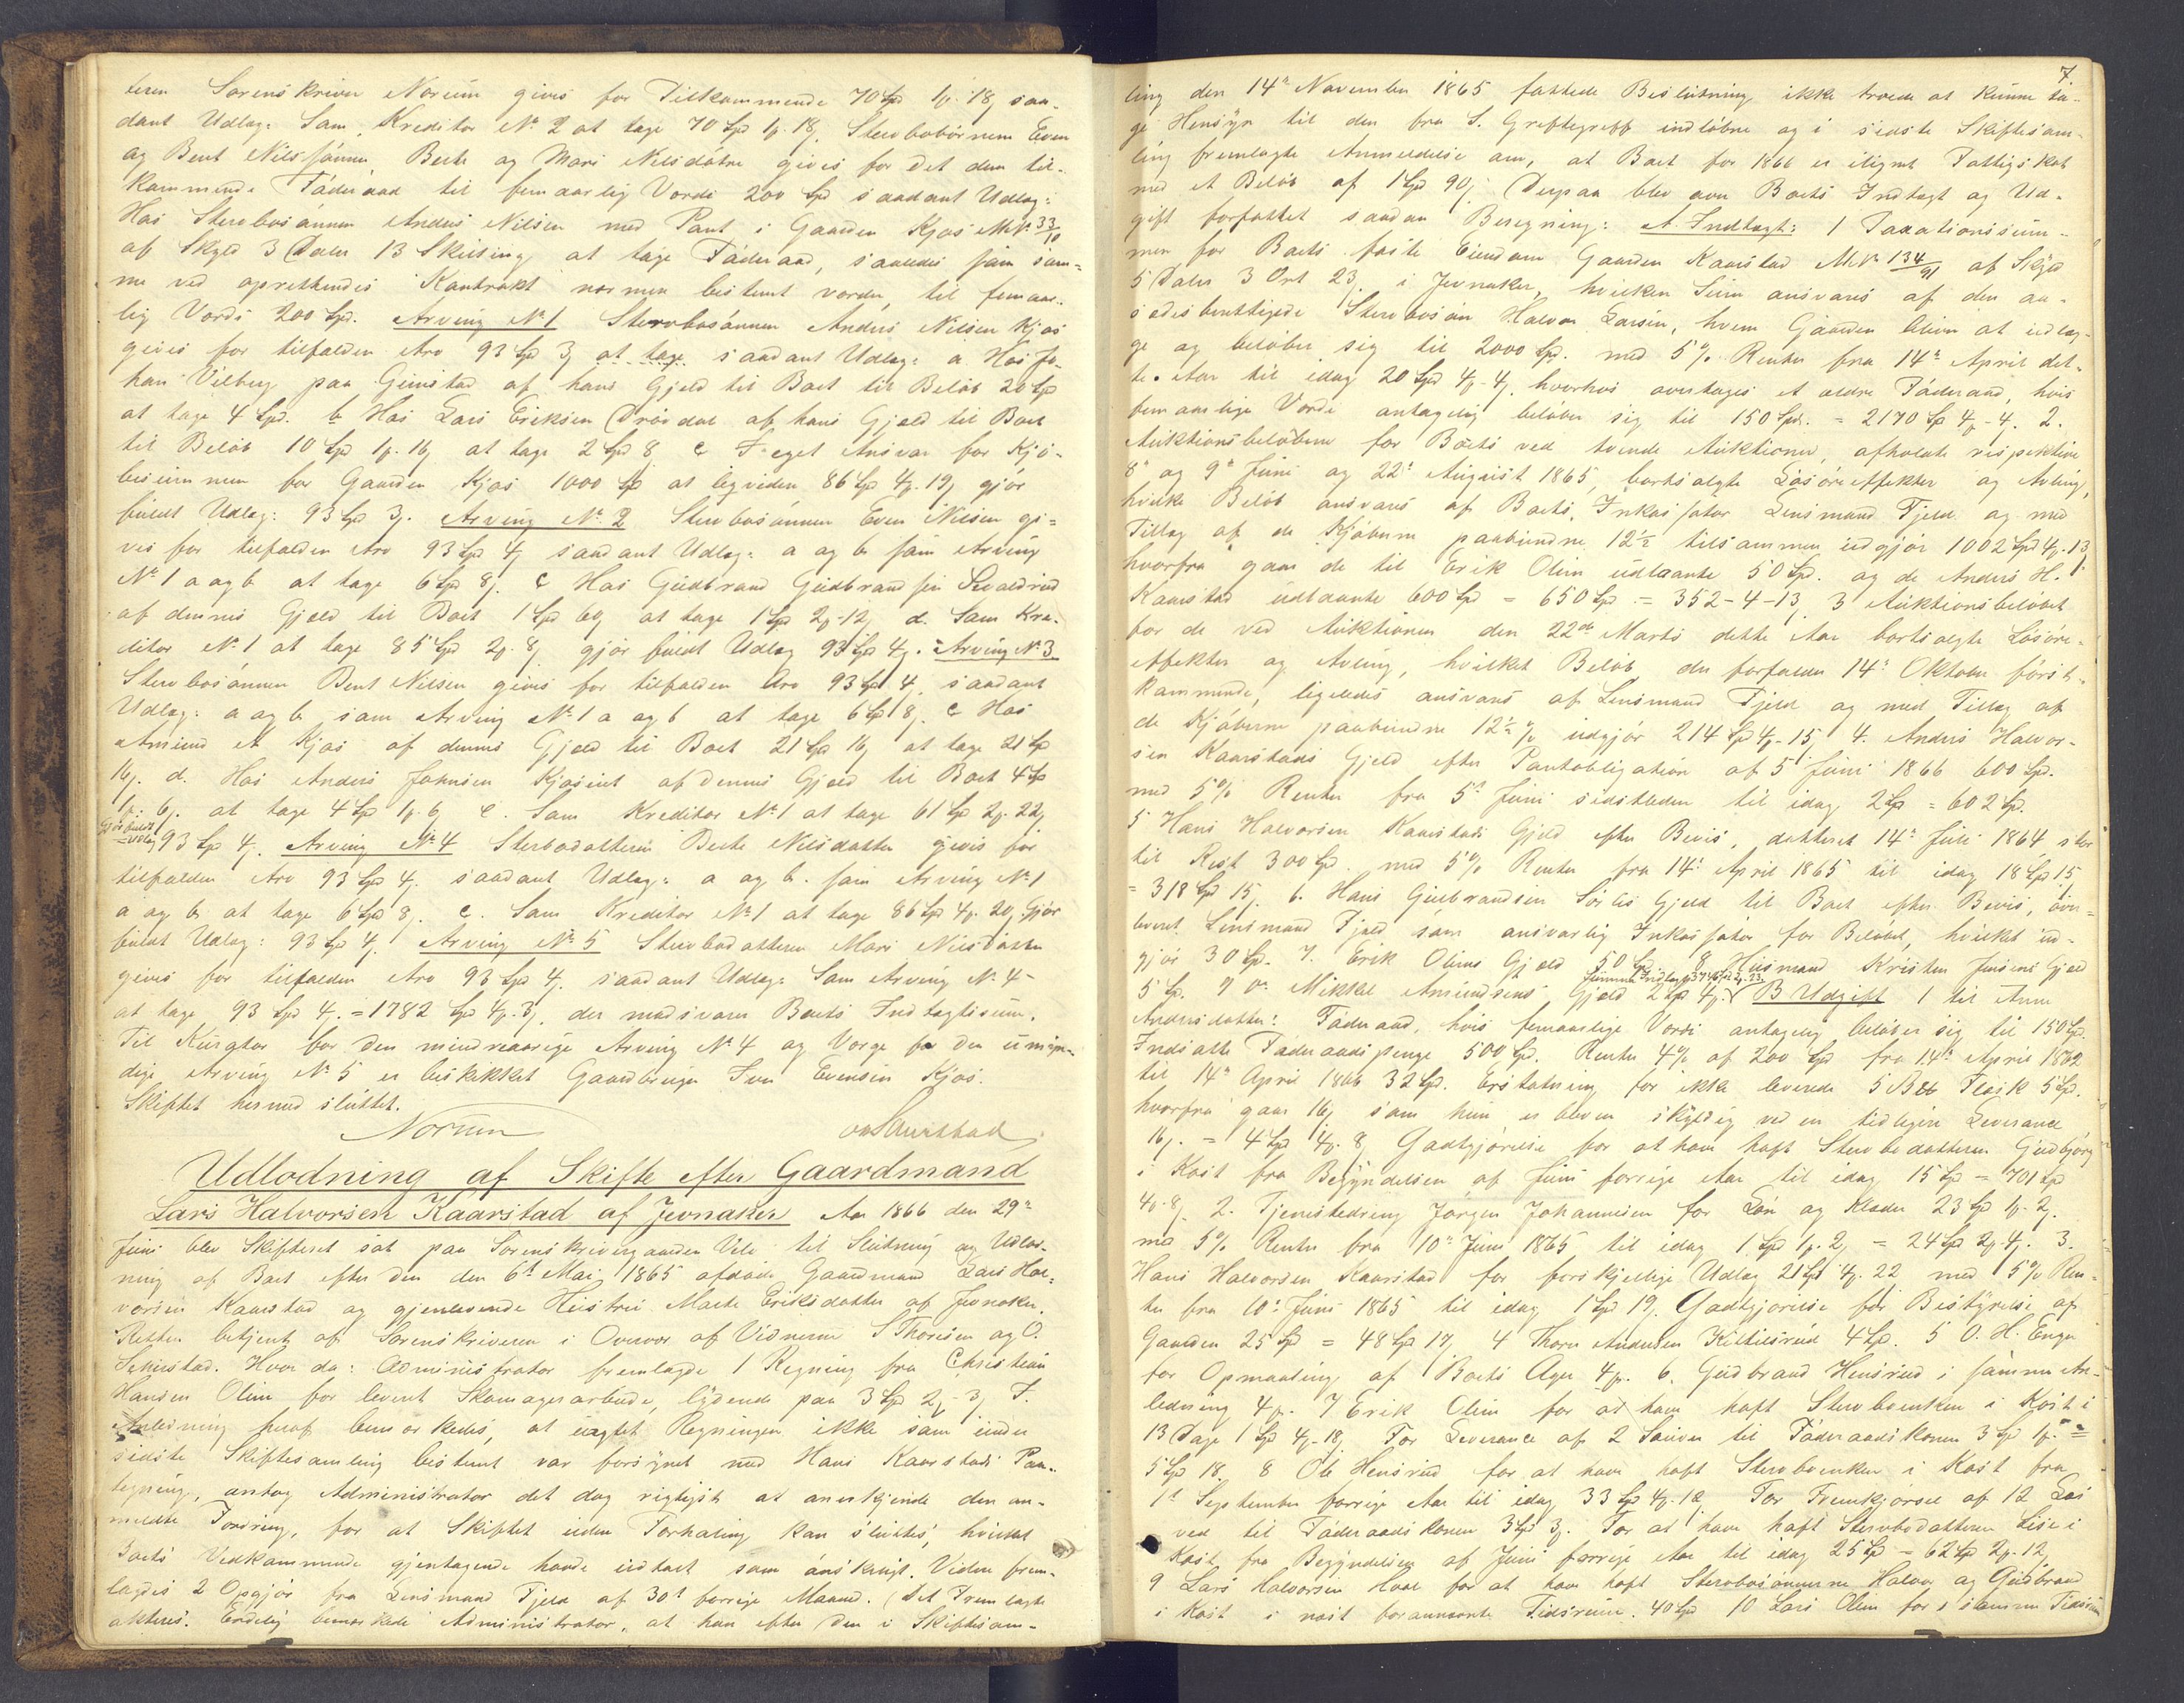 teren Sorenskriver Norum gives for Tilkommende 70 Spd 1 - 18 saa-
dant Udlæg: Som Kreditor No 2 at tage 70 Spd 1 - 18. Stervbobörnene Even
og Bent Nilssönner Berte og Mari Nilsdötre gives for det dem til-
kommende Föderaad til femaarlig Værdi 200 Spd saadant Udlæg:
Hos Stervbosönnen Anders Nilsen med Pant i Gaarden Kjos Mtr No 33/10
af Skyld 3 Daler 13 Skilling at tage Föderaad, saaledes som sam-
me ved oprettendes Kontrakt nærmere bestemt vorder, til femaar-
lig Værdi 200 Spd. Arving No 1 Stervbosönnen Anders Nilsen Kjos
gives for tilfalden Arv 93 Spd 3 at tage saadant Udlæg: a. Hos Jo-
han Vilberg paa Grinstad af hans Gjeld til Boet til Belöb 20 Spd
at tage 4 Spd. b Hos Lars Eriksen Drövdal af hans Gjeld til Boet
til Belöb 10 Spd 1 - 16 at tage 2 Spd 8 c I eget Ansvar for Kjö-
besummen for Gaarden Kjos 1000 Spd at liqvidere 86 Spd 4 - 19 gjör
fuldt Udlæg: 93 Spd 3. Arving No 2 Stervbosönnen Even Nilsen gi-
ves for tilfalden Arv 93 Spd 4 saadant Udlæg: a og b som Arving
No 1 a og b at tage 6 Spd 8. c Hos Gudbrand Gudbrandsen Sevaldrud
af dennes Gjeld til Boet 1 Spd 60 at tage 1 Spd 2 - 12 d. Som Kre-
ditor No 1 at tage 85 Spd 2 - 8 gjör fuldt Udlæg 93 Spd 4. Arving No 3
Stervbosönnen Bent Nilsen gives for tilfalden Arv 93 Spd 4 saadant
Udlæg: a og b som Arving No 1 a og b at tage 6 Spd 8. c Hos
Amund Kjos af dennes Gjeld til Boet 21 Spd 16 at tage 21 Spd
16. d. Hos Anders Johnsen Kjoseiet af dennes Gjeld til Boet 4 Spd
1 - 6. at tage 4 Spd 1 - 6 e. Som Kreditor No 1 at tage 61 Spd 2 - 22
Gjör fuldt Udlæg 93 Spd 4. Arving No 4 Stervbodatteren Berte Nilsdatter gives for
tilfalden Arv 93 Spd 4. saadant Udlæg: a og b. som Arving No 1
a og b at tage 6 Spd 8. c. Som Kreditor No 1 at tage 86 Spd 4 - 20 gjör
fuldt Udlæg: 93 Spd 4. Arving No 5 Stervbodatteren Mari Nilsdatter
gives for tilfalden Arv 93 Spd 4. saadant Udlæg: Som Arving No 4
at tage 93 Spd 4. = 1782 Spd 4 - 3. der modsvarer Boets Indtægtssum.
Til Kurator for den mindreaarige Arving No 4 og Værge for den umyn-
dige Arving No 5 er beskikket Gaardbruger Iver Evensen Kjos.
Skiftet hermed sluttet.
Norum
Udlodning af Skifte efter Gaardmand
Lars Halvorsen Kaarstad af Jevnaker Aar 1866 den 29
Juni blev Skifteret sat paa Sorenskrivergaarden Vile til Slutning og Udlod-
ning af Boet efter den den 6t Mai 1865 afdöde Gaardmand Lars Hal-
vorsen Kaarstad og gjenlevende Hustru Marte Eriksdatter af Jevnaker.
Retten betjent af Sorenskriveren i Overvær af Vidnerne S Thoresen og O.
Schiestad. Hvor da: Administrator fremlagde 1 Regning fra Christian
Hansen Olien for leveret Skomagerarbeide, lydende paa 3 Spd 2 - 3. I
Anledning heraf bemærkedes, at uagtet Regningen ikke som under
sidste Skiftesamling bestemt var forsynet med Hans Kaarstads Paa-
tegning, antog Administrator det dog rigtigst at anerkjende den an-
meldte Fordring, for at Skiftet uden Forhaling kan sluttes, hvilket
Boets Vedkommende gjentagende havde udtalt som önskeligt. Videre frem-
lagdes 2 Opgjör fra Lensmand Fjeld af 30t forrige Maaned. (Det Fremlagte
akteres. Endelig bemærkede Administrator, at han efter den i Skiftesam-
7.
ling den 14 November 1865 fattede Beslutning ikke troede at kunne ta-
ge Hensyn til den fra S. Greftegreff indlöbne og i sidste Skiftesam-
ling fremlagte Anmeldelse om, at Boet for 1866 er ilignet Fattigskat
med et Belöb af 1 Spd 90. Derpaa blev over Boets Indtægt og Ud-
gift forfattet saadan Beregning: A. Indtægt: 1 Taxationssum-
men for Boets faste Eiendom Gaarden Kaarstad Mtr No 134/91 af Skyld
5 Daler 3 Ort 23. i Jevnaker, hvilken Sum ansvares af den aa-
sædesberettigede Stervbosön Halvor Larsen, hvem Gaarden bliver at udlæg-
ge og belöber sig til 2000 Spd. med 5% Renter fra 14 April det-
te Aar til idag 20 Spd 4 - 4. hvorhos overtages et ældre Föderaad, hvis
femaarlige Værdi antagelig belöber sig til 150 Spd. = 2170 Spd 4 - 4. 2.
Auktionsbelöbene for Boets ved tvende Auktioner, afholdte respektive
8 og 9 Juni og 22 August 1865, bortsolgte Lösöreeffekter og Avling,
hvilke Belöb ansvares af Boets Inkassator Lensmand Fjeld og med
Tillæg af de Kjöberne paabundne 12½ tilsammen udgjör 1002 Spd 4 - 13
hvorfra gaar de til Erik Olien udlaante 50 Spd. og de Anders H.
Kaarstad udlaante 600 Spd = 650 Spd = 352 - 4 - 13. 3 Auktionsbelöbet
for de ved Auktionen den 22de Marts dette Aar bortsolgte Lösöre-
effekter og Avling, hvilket Belöb der forfalder 14 Oktober först-
kommende, ligeledes ansvares af Lensmand Fjeld og med Tillæg af
de Kjöberne paabundne 12½ % udgjör 214 Spd 4 - 15 4. Anders Halvor-
sen Kaarstads Gjeld efter Pantobligation af 5 Juni 1866 600 Spd.
med 5% Renter fra 5 Juni sidstleden til idag 2 Spd = 602 Spd.
5 Hans Halvorsen Kaarstads Gjeld efter Bevis, datteret 14 Juli 1864 stor
til Rest 300 Spd. med 5% Renter fra 14 April 1865 til idag 18 Spd 15
= 318 Spd 15. 6. Hans Gudbrandsen Sörlis Gjeld til Boet efter Bevis, over-
leveret Lensmand Fjeld som ansvarlig Inkassator for Belöbet, hvilket ud-
gjör 30 Spd. 7. Erik Oliens Gjeld 50 Spd. 8 Husmand Kristen Jensens Gjeld
5 Spd. 9 Mikkel Amundsens Gjeld 2 Spd 4. Summa Indtægt 3746 Spd 2 - 23. B Udgift 1 til Anne
Andersdatter: Föderaad, hvis femaarlige Værdi antagelig belöber sig til 150 Spd.
Indsatte Föderaadspenge 500 Spd. Renter 4% af 200 Spd fra 14 April 1862
til 14 April 1866 32 Spd. Erstatning for ikke leverede 5 B Flesk 5 Spd.
hvorfra gaar 16 som hun er bleven skyldig ved en tidligere Leverance
16. = 4 Spd 4 - 8 Godtgjörelse for at have havt Stervbodatteren Gudbjörg
i Kost fra Begyndelsen af Juni forrige Aar til idag 15 Spd = 701 Spd
4 - 8. 2. Tjenestedreng Jörgen Johannesen for Lön og Klæder 23 Spd 1 - 2.
med 5% Renter fra 10 Juni 1865 til idag 1 Spd 1 - 2 = 24 Spd 2 - 4. 3.
Hans Halvorsen Kaarstad for forskjellige Udlæg 21 Spd 4 - 22 med 5% Ren-
ter fra 10 Juni 1865 til idag 1 Spd 19. Godtgjörelse for Bestyrelse af
Gaarden 25 Spd = 48 Spd 17 4 Thorer Andersen Kittilsrud 4 Spd. 5 O. H. Enger
for Opmaaling af Boets Ager 4. 6. Gudbrand Hensrud i samme An-
ledning 4. 7 Erik Olien for at have haft Stervboenken i Kost i
13 Dage 1 Spd 4 - 18. For Leverance af 2 Sauer til Föderaadskonen 3 Spd 1 =
5 Spd 18. 8 Ole Hensrud for at have haft Stervboenken i Kost fra
1t September forrige Aar til idag 33 Spd 4 - 12. For Fremkjörsel af 12 Læs
ved til Föderaadskonen 3 Spd 3. For at have haft Stervbodatteren Lise i
Kost fra Begyndelsen af Juni forrige Aar til idag 25 Spd = 62 Spd 2 - 12.
9 Lars Halvorsen Hval for at have haft Stervbosönnerne Halvor og Gudbrand
i Kost i næst forannævnte Tidsrum. 40 Spd 10 Lars Olien for i samme Tidsrum